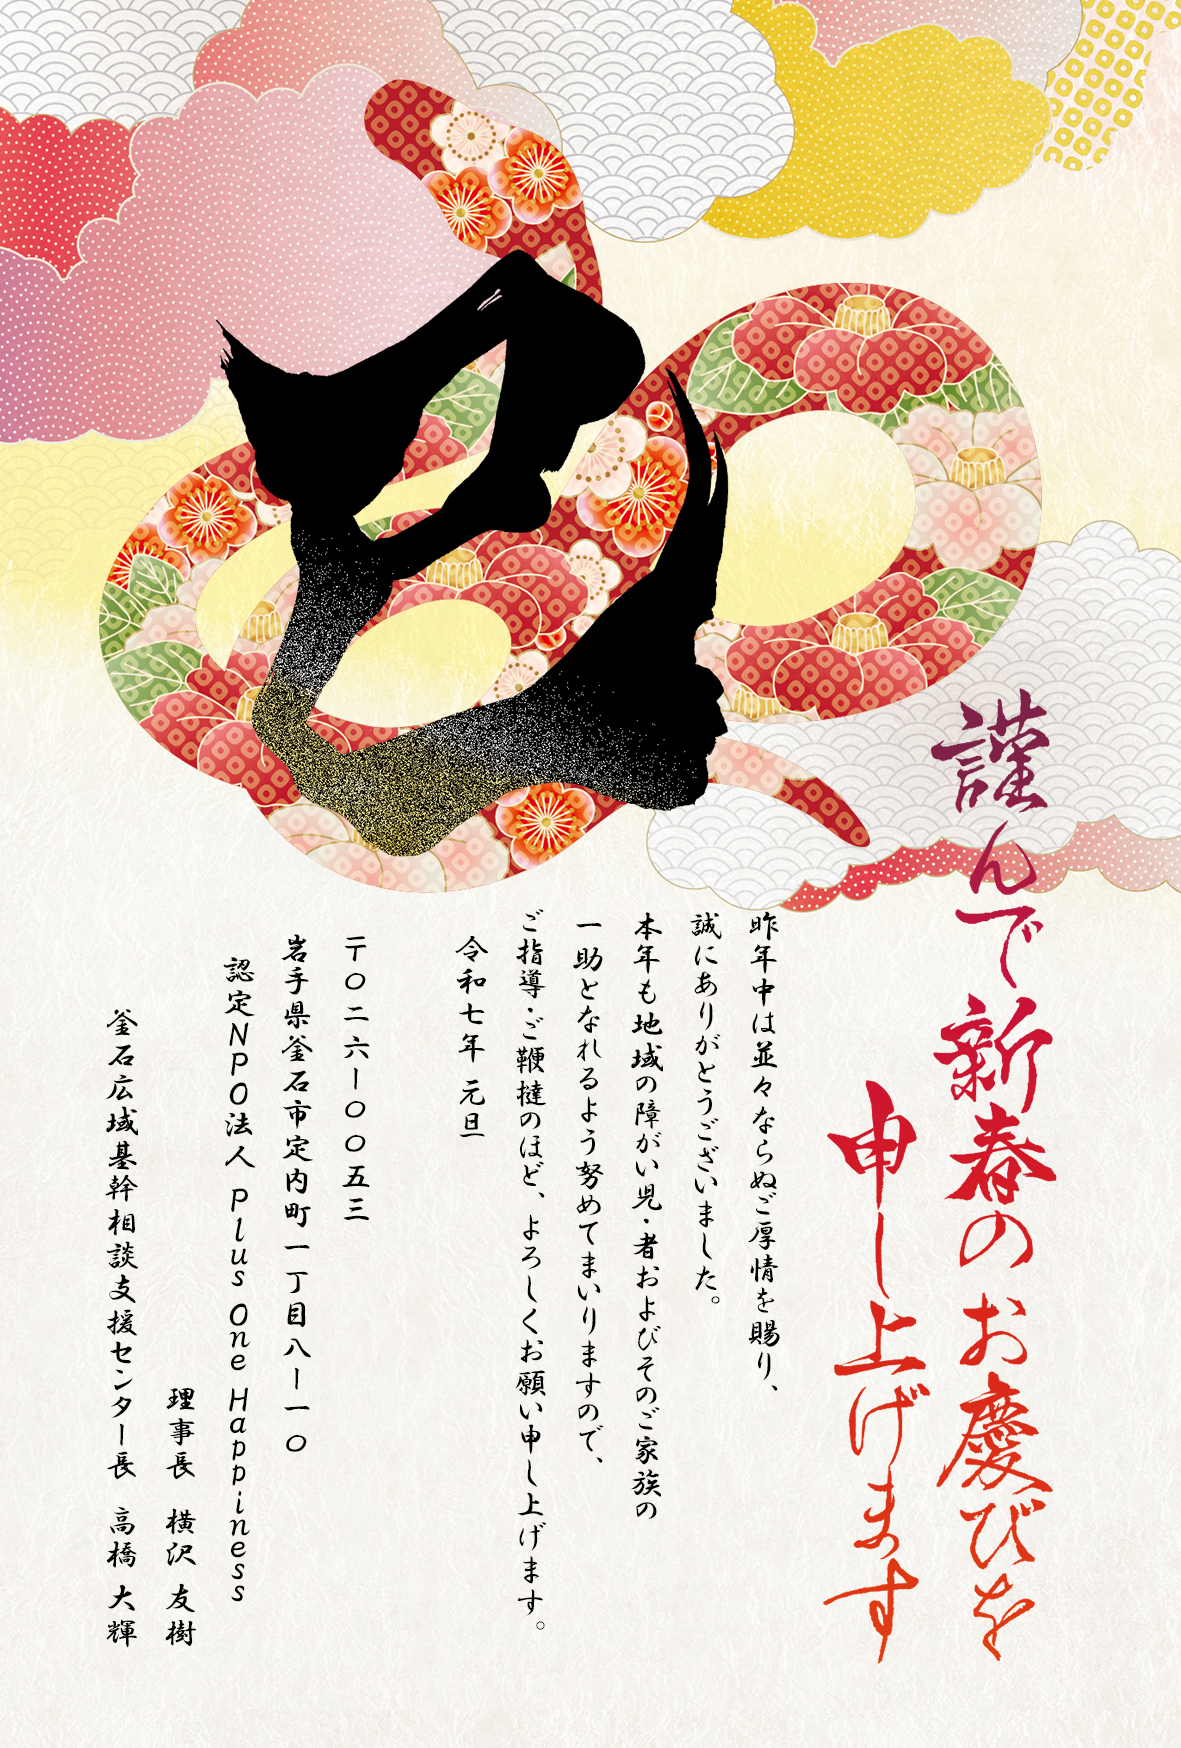 巳
謹んで新春のお慶びを
申し上げます
昨年中は並々ならぬご厚情を賜り、
誠にありがとうございました。
本年も地域の障がい児・者およびそのご家族の
一助となれるよう努めてまいりますので、
ご指導・ご鞭撻のほど、よろしくお願い申し上げます。
令和七年 元旦
〒〇二六ー〇〇五三
岩手県釜石市定内町一丁目八ー一〇
認定NPO法人 Plus One Happiness
理事長 横沢 友樹
釜石広域基幹相談支援センター長 高橋 大輝